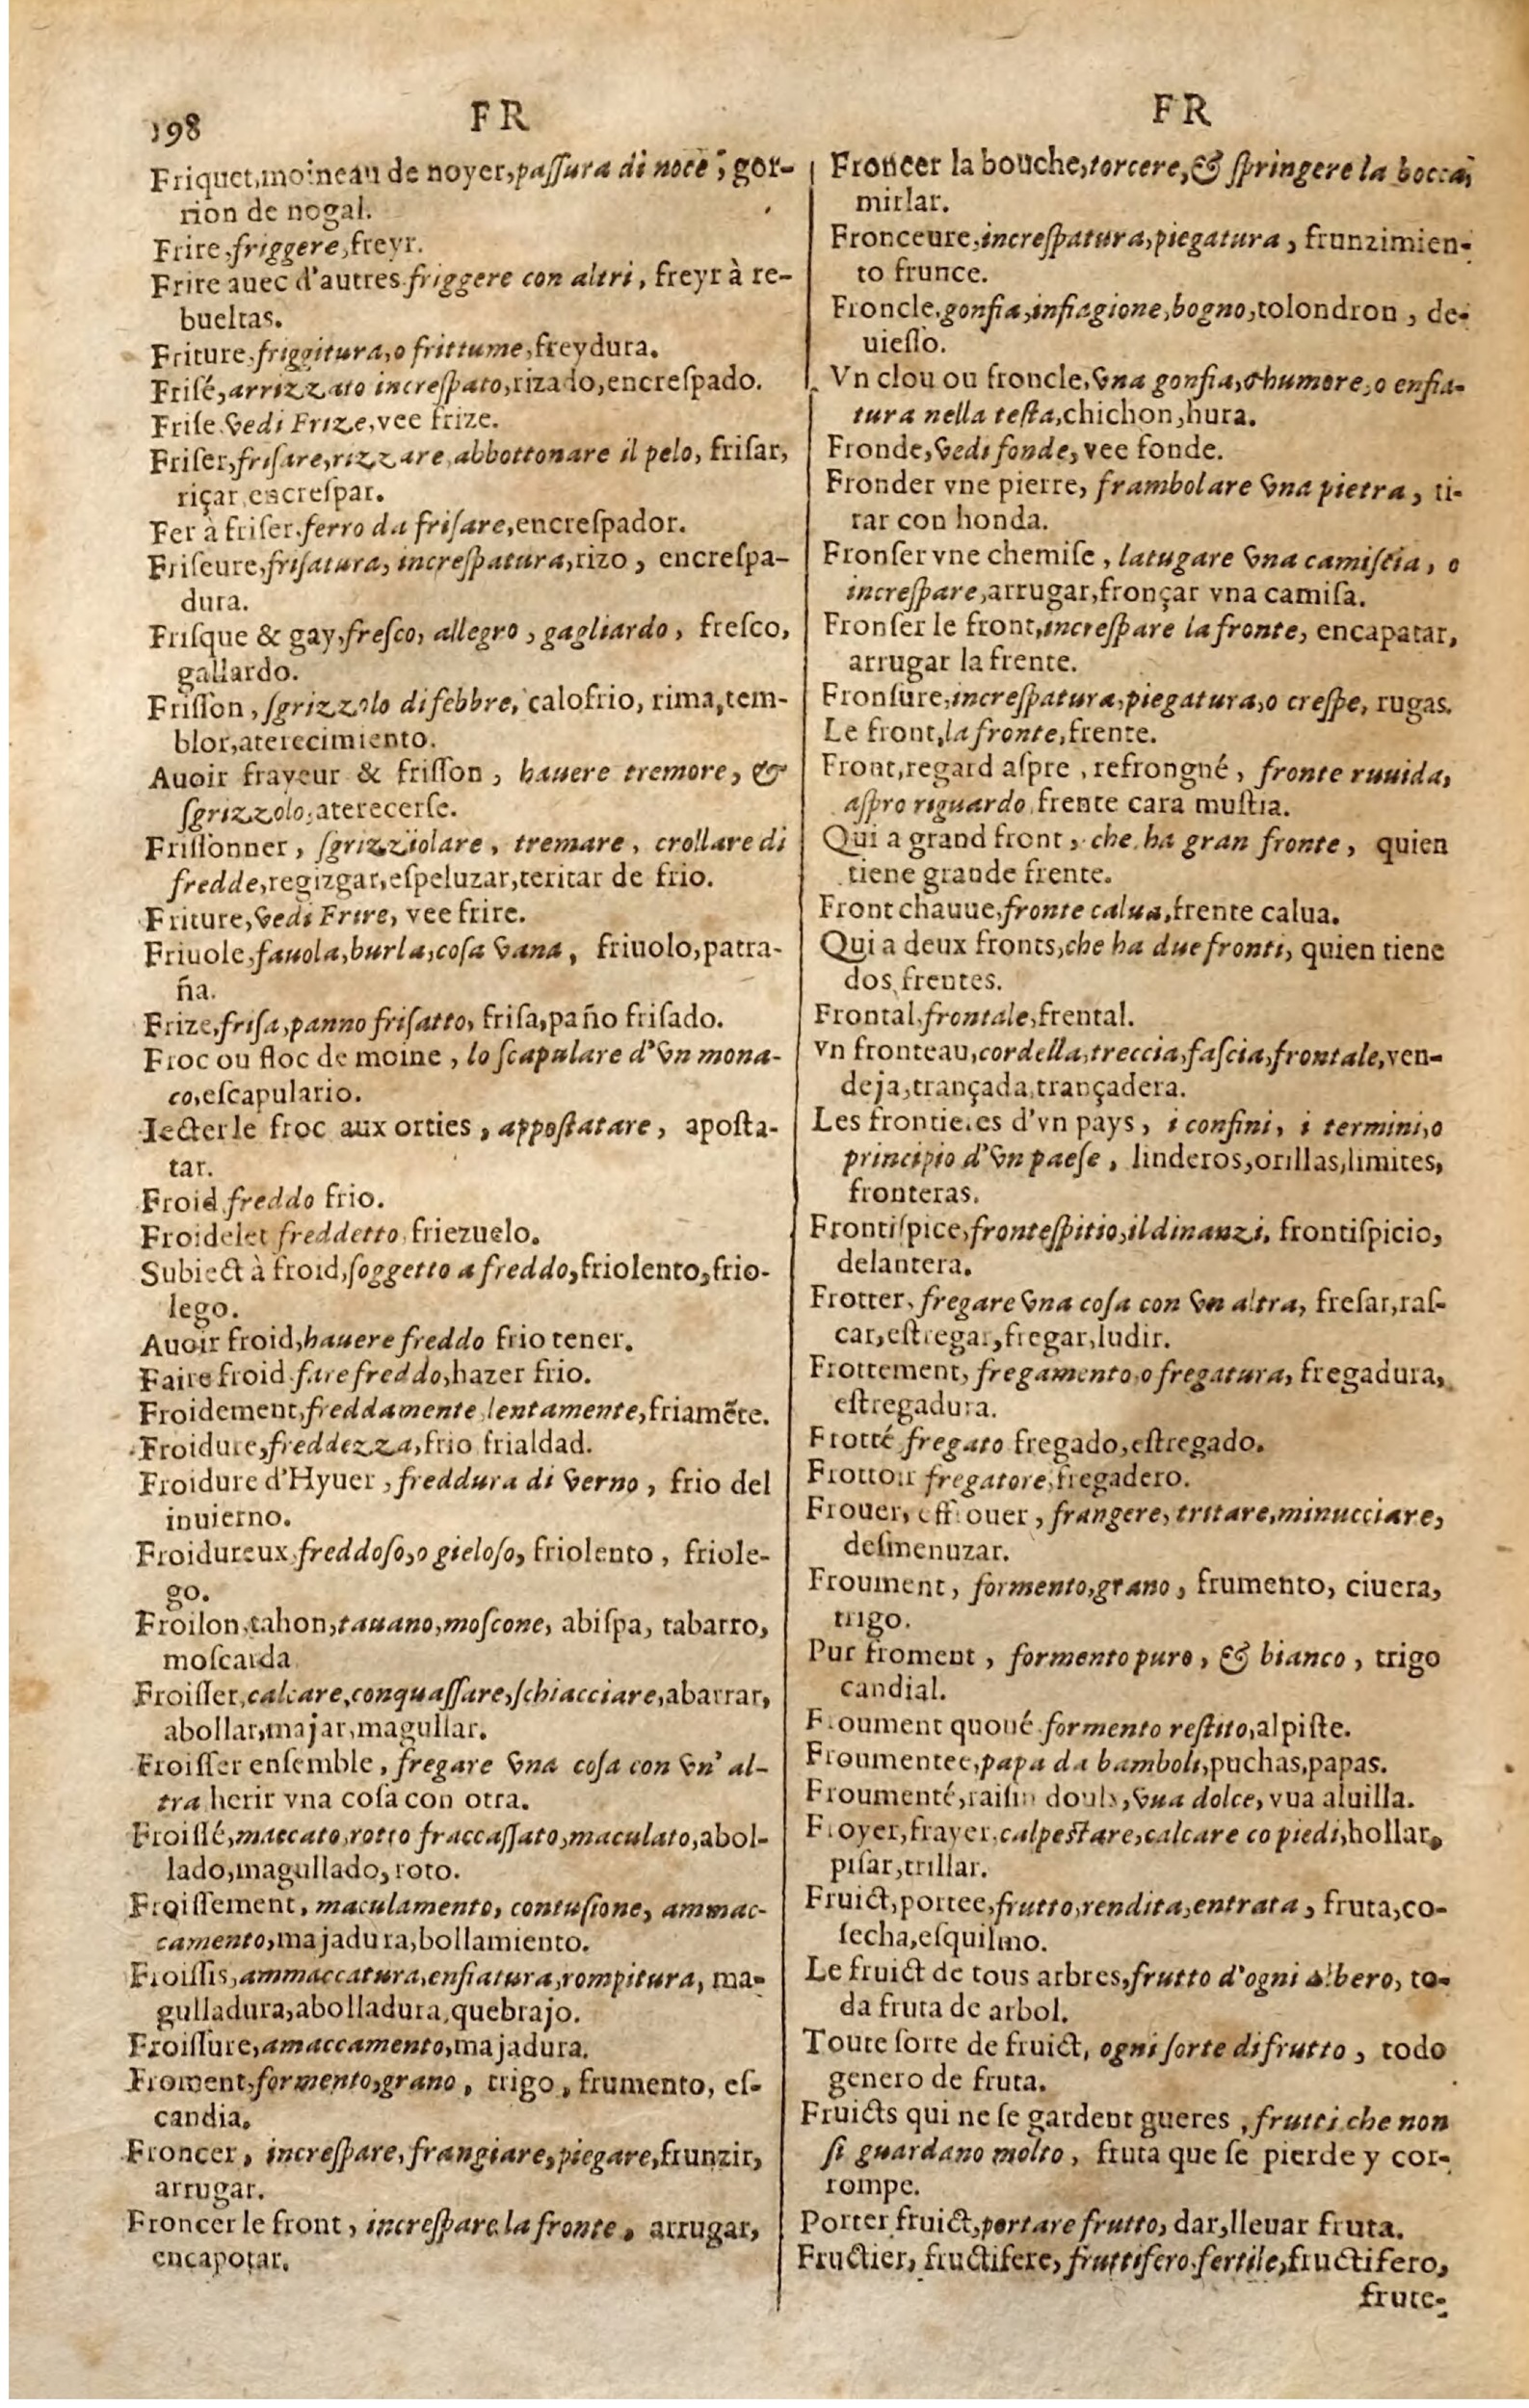 198
FR
Friquet,moineau de noyer,paſſura di noce, gor-
rion de nogal.
Frire,friggere,freyr.
Frire auec d'autres friggere con altri, freyr à re-
bueltas.
Friture,friggitura,o frittume,freydura.
Friſé,arrizzato increſpato,rizado,encreſpado.
Friſe vedi Frize,vee frize.
Friſer,friſare,rizzare,abbottonare il pelo, friſar,
riçar,encreſpar.
Fer à friſer,ferro da friſare,encreſpador.
Friſeure,friſatura, increſpatura,rizo, encreſpa-
dura.
Friſque & gay,freſco, allegro, gagliardo, freſco,
gallardo.
Friſſon, ſgrizzolo di febbre, calofrio, rima,tem-
blor,aterecimiento.
Auoir frayeur & friſſon, hauere tremore, &
ſgrizzolo,aterecerſe.
Friſſonner, ſgrizziolare, tremare, crollare di
fredde,regizgar,eſpeluzar,teritar de frio.
Friture,vedi Frire, vee frire.
Friuole,fauola,burla,coſa vana, friuolo,patra-
ña.
Frize,friſa,panno friſatto, friſa,paño friſado.
Froc ou floc de moine, lo ſcapulare d'vn mona-
co,eſcapulario.
Iecter le froc aux orties, appoſtatare, apoſta-
tar.
Froid freddo frio.
Froidelet freddetto friezuelo.
Subiect à froid,ſoggetto a freddo,friolento,frio-
lego.
Auoir froid,hauere freddo frio tener.
Faire froid fare freddo,hazer frio.
Froidement,freddamente lentamente,friamẽte.
Froidure,freddezza,frio frialdad.
Froidure d'Hyuer, freddura di verno, frio del
inuierno.
Froidureux freddoſo,o gieloſo, friolento, friole-
go.
Froilon,tahon,tauano,moſcone, abiſpa, tabarro,
moſcarda
Froiſſer,calcare,conquaſſare,ſchiacciare,abarrar,
abollar,majar,magullar.
Froiſſer enſemble, fregare vna coſa con vn' al-
tra herir vna coſa con otra.
Froiſſé,maccato,rotto fraccaſſato,maculato,abol-
lado,magullado,roto.
Froiſſement, maculamento, contuſione, ammac-
camento,majadura,bollamiento.
Froiſſis,ammaccatura,enfiatura,rompitura, ma-
gulladura,abolladura,quebrajo.
Froiſſure,amaccamento,majadura.
Froment,formento,grano, trigo, frumento, eſ-
candia.
Froncer, increſpare,frangiare,piegare,frunzir,
arrugar.
Froncer le front, increſpare la fronte, arrugar,
encapotar.
FR
Froncer la bouche,torcere,& ſpringere la bocca,
mirlar.
Fronceure,increſpatura,piegatura, frunzimien-
to frunce.
Froncle,gonfia,infiagione,bogno,tolondron, de-
uieſſo.
Vn clou ou froncle,vna gonfia,&humore,o enfia-
tura nella teſta,chichon,hura.
Fronde,vedi fonde,vee fonde.
Fronder vne pierre, frambolare vna pietra, ti-
rar con honda.
Fronſer vne chemiſe, latugare vna camiſcia, o
increſpare,arrugar,fronçar vna camiſa.
Fronſer le front,increſpare la fronte, encapatar,
arrugar la frente.
Fronſure,increſpatura,piegatura,o creſpe, rugas.
Le front,la fronte,frente.
Front,regard aſpre, refrongné, fronte ruuida,
aſpro riguardo,frente cara muſtia.
Qui a grand front, che ha gran fronte, quien
tiene grande frente.
Front chauue,fronte calua,frente calua.
Qui a deux fronts,che ha due fronti, quien tiene
dos frentes.
Frontal,frontale,frental.
vn fronteau,cordella,treccia,faſcia,frontale,ven-
deja,trançada,trançadera.
Les frontieres d'vn pays, i confini, i termini,o
principio d'vn paeſe, linderos,orillas,limites,
fronteras.
Frontiſpice,fronteſpitio,il dinanzi, frontiſpicio,
delantera.
Frotter, fregare vna coſa con vn altra, freſar,raſ-
car,eſtregar,fregar,ludir.
Frottement, fregamento o fregatura, fregadura,
eſtregadura.
Frotté fregato fregado,eſtregado.
Frottoir fregatore,fregadero.
Frouer, effrouer, frangere, tritare,minucciare,
deſmenuzar.
Froument, formento,grano, frumento, ciuera,
trigo.
Pur froment, formento puro, & bianco, trigo
candial.
Froument quoué formento reſtito,alpiſte.
Froumentee,papa da bamboli,puchas,papas.
Froumenté,raiſin doulx,vua dolce, vua aluilla.
Froyer,frayer,calpeſtare,calcare co piedi,hollar,
piſar,trillar.
Fruict,portee,frutto,rendita,entrata, fruta,co-
ſecha,eſquilmo.
Le fruict de tous arbres,frutto d'ogni albero, to-
da fruta de arbol.
Toute ſorte de fruict, ogni ſorte di frutto, todo
genero de fruta.
Fruicts qui ne ſe gardent gueres, frutti che non
ſi guardano molto, fruta que ſe pierde y cor-
rompe.
Porter fruict,portare frutto, dar,lleuar fruta.
Fructier, fructifere, fruttifero fertile,fructifero,
frute-